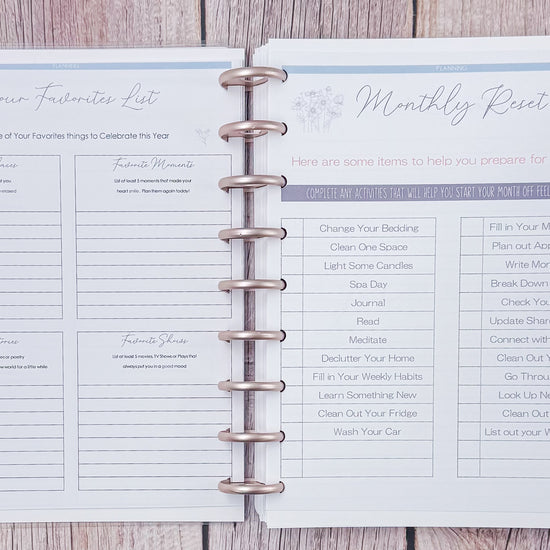 PLANNERS
our Favorites List
e of Your Favorites things to Celebrate this Year
aces
at you
relaxed
Favorite Moments
List at least 5 moments that made your
heart smile. Plan them again today!
tories
es or poetry
new world for a little while
Favorite Shows
List at least 5 movies, TV Shows or Plays that
always put you in a good mood
PLANNING
Monthly Reset
Here are some items to help you prepare for
COMPLETE ANY ACTIVITIES THAT WILL HELP YOU START YOUR MONTH OFF FEEL
Change Your Bedding
Clean One Space
Light Some Candles
Spa Day
Journal
Read
Meditate
Declutter Your Home
Fill in Your Weekly Habits
Learn Something New
Clean Out Your Fridge
Wash Your Car
Fill in Your M
Plan out App
Write Mon
Break Down
Check You
Update Share
Connect with
Clean Out Y
Go Throu
Look Up Ne
Clean Out
List out your W